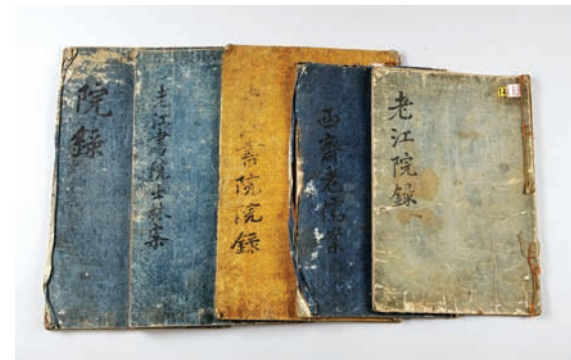 院錄
老江書院士林案
書院院錄
西齋老儒案
老江院錄